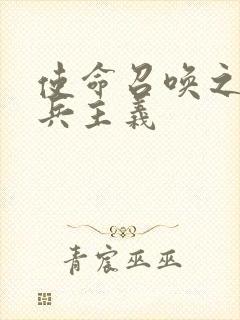 使命召唤之
兵主义
青宸巫巫